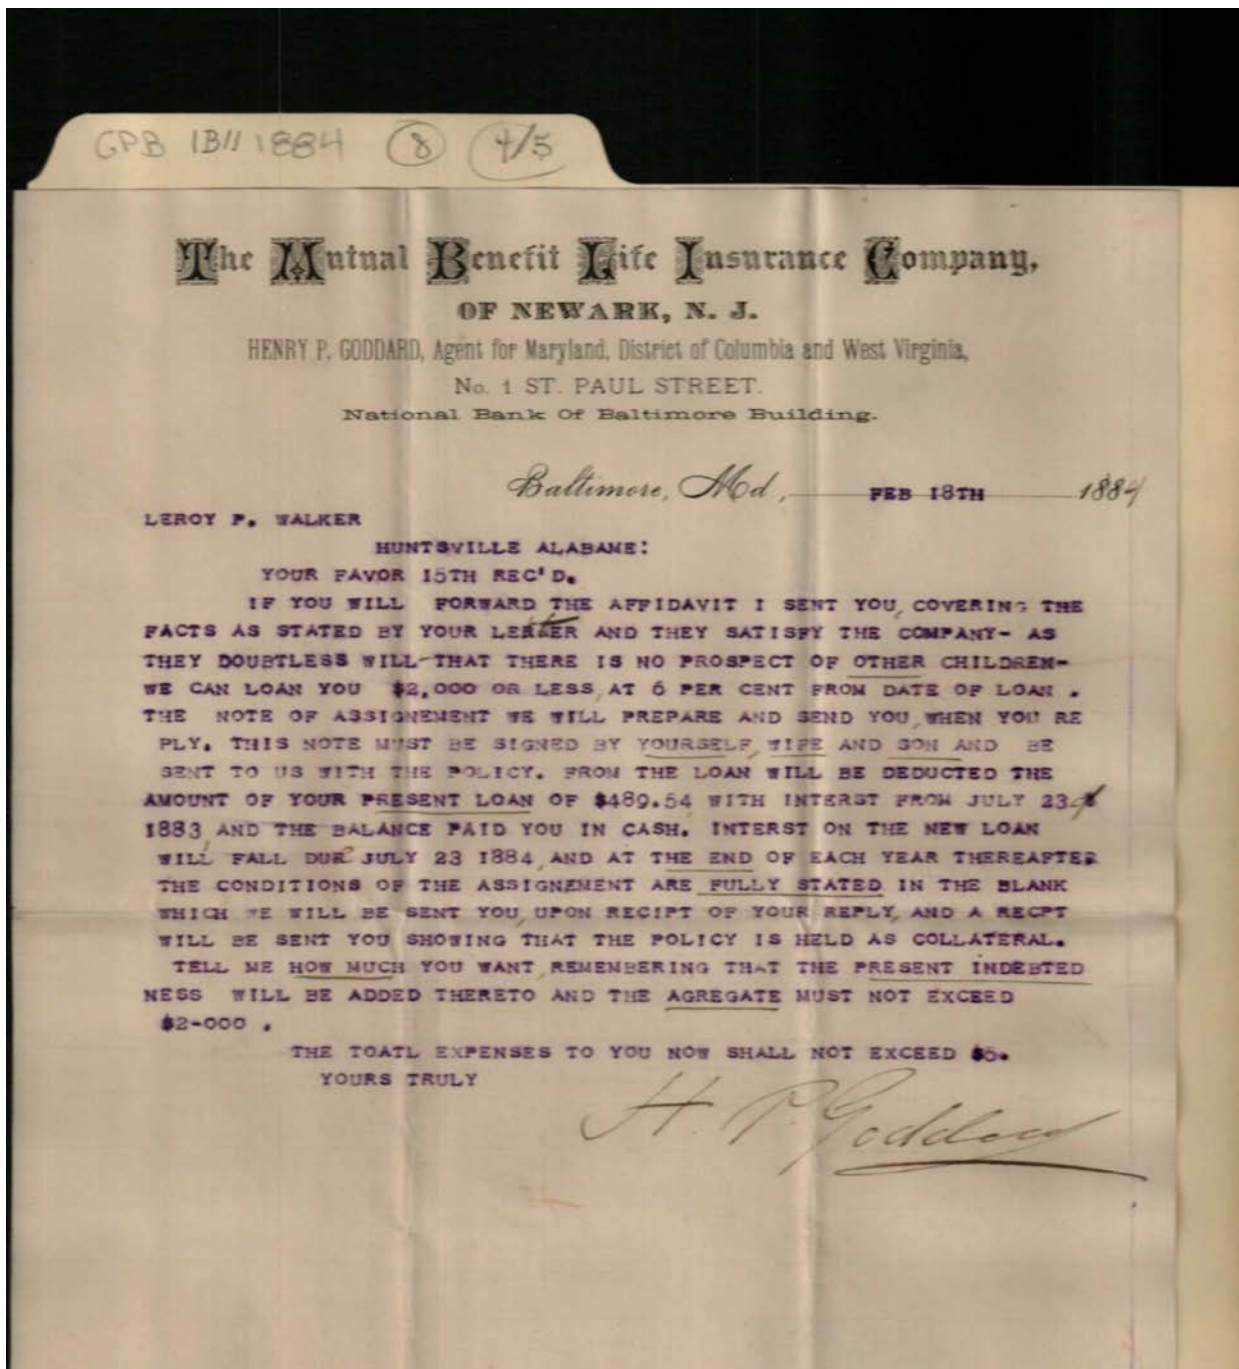 GPB 1B11 1884 8 4/5
The Mutual Benefit Life Insurance Company,
OF NEWARK, N. J.
HENRY P. GODDARD, Agent for Maryland, District of Columbia and West Virginia,
No. 1 ST. PAUL STREET.
National Bank Of Baltimore Building.
Baltimore, Md., FEB 18TH 1884
LEROY P. WALKER
HUNTSVILLE ALABAME:
YOUR FAVOR 15TH REC'D.
IF YOU WILL FORWARD THE AFFIDAVIT I SENT YOU, COVERING THE
FACTS AS STATED BY YOUR LETTER AND THEY SATISFY THE COMPANY- AS
THEY DOUBTLESS WILL-THAT THERE IS NO PROSPECT OF OTHER CHILDREN-
WE CAN LOAN YOU $2,000 OR LESS, AT 6 PER CENT FROM DATE OF LOAN .
THE NOTE OF ASSIGNEMENT WE WILL PREPARE AND SEND YOU, WHEN YOU RE
PLY. THIS NOTE MUST BE SIGNED BY YOURSELF, WIFE AND SON AND BE
SENT TO US WITH THE POLICY. FROM THE LOAN WILL BE DEDUCTED THE
AMOUNT OF YOUR PRESENT LOAN OF $489.54 WITH INTERST FROM JULY 23
1883 AND THE BALANCE PAID YOU IN CASH. INTERST ON THE NEW LOAN
WILL FALL DUE JULY 23 1884, AND AT THE END OF EACH YEAR THEREAFTER
THE CONDITIONS OF THE ASSIGNEMENT ARE FULLY STATED IN THE BLANK
WHICH WE WILL BE SENT YOU, UPON RECIPT OF YOUR REPLY, AND A RECPT
WILL BE SENT YOU SHOWING THAT THE POLICY IS HELD AS COLLATERAL.
TELL ME HOW MUCH YOU WANT, REMEMBERING THAT THE PRESENT INDEBTED
NESS WILL BE ADDED THERETO AND THE AGREGATE MUST NOT EXCEED
$2-000 .
THE TOATL EXPENSES TO YOU NOW SHALL NOT EXCEED $5.
YOURS TRULY
H. P. Goddard